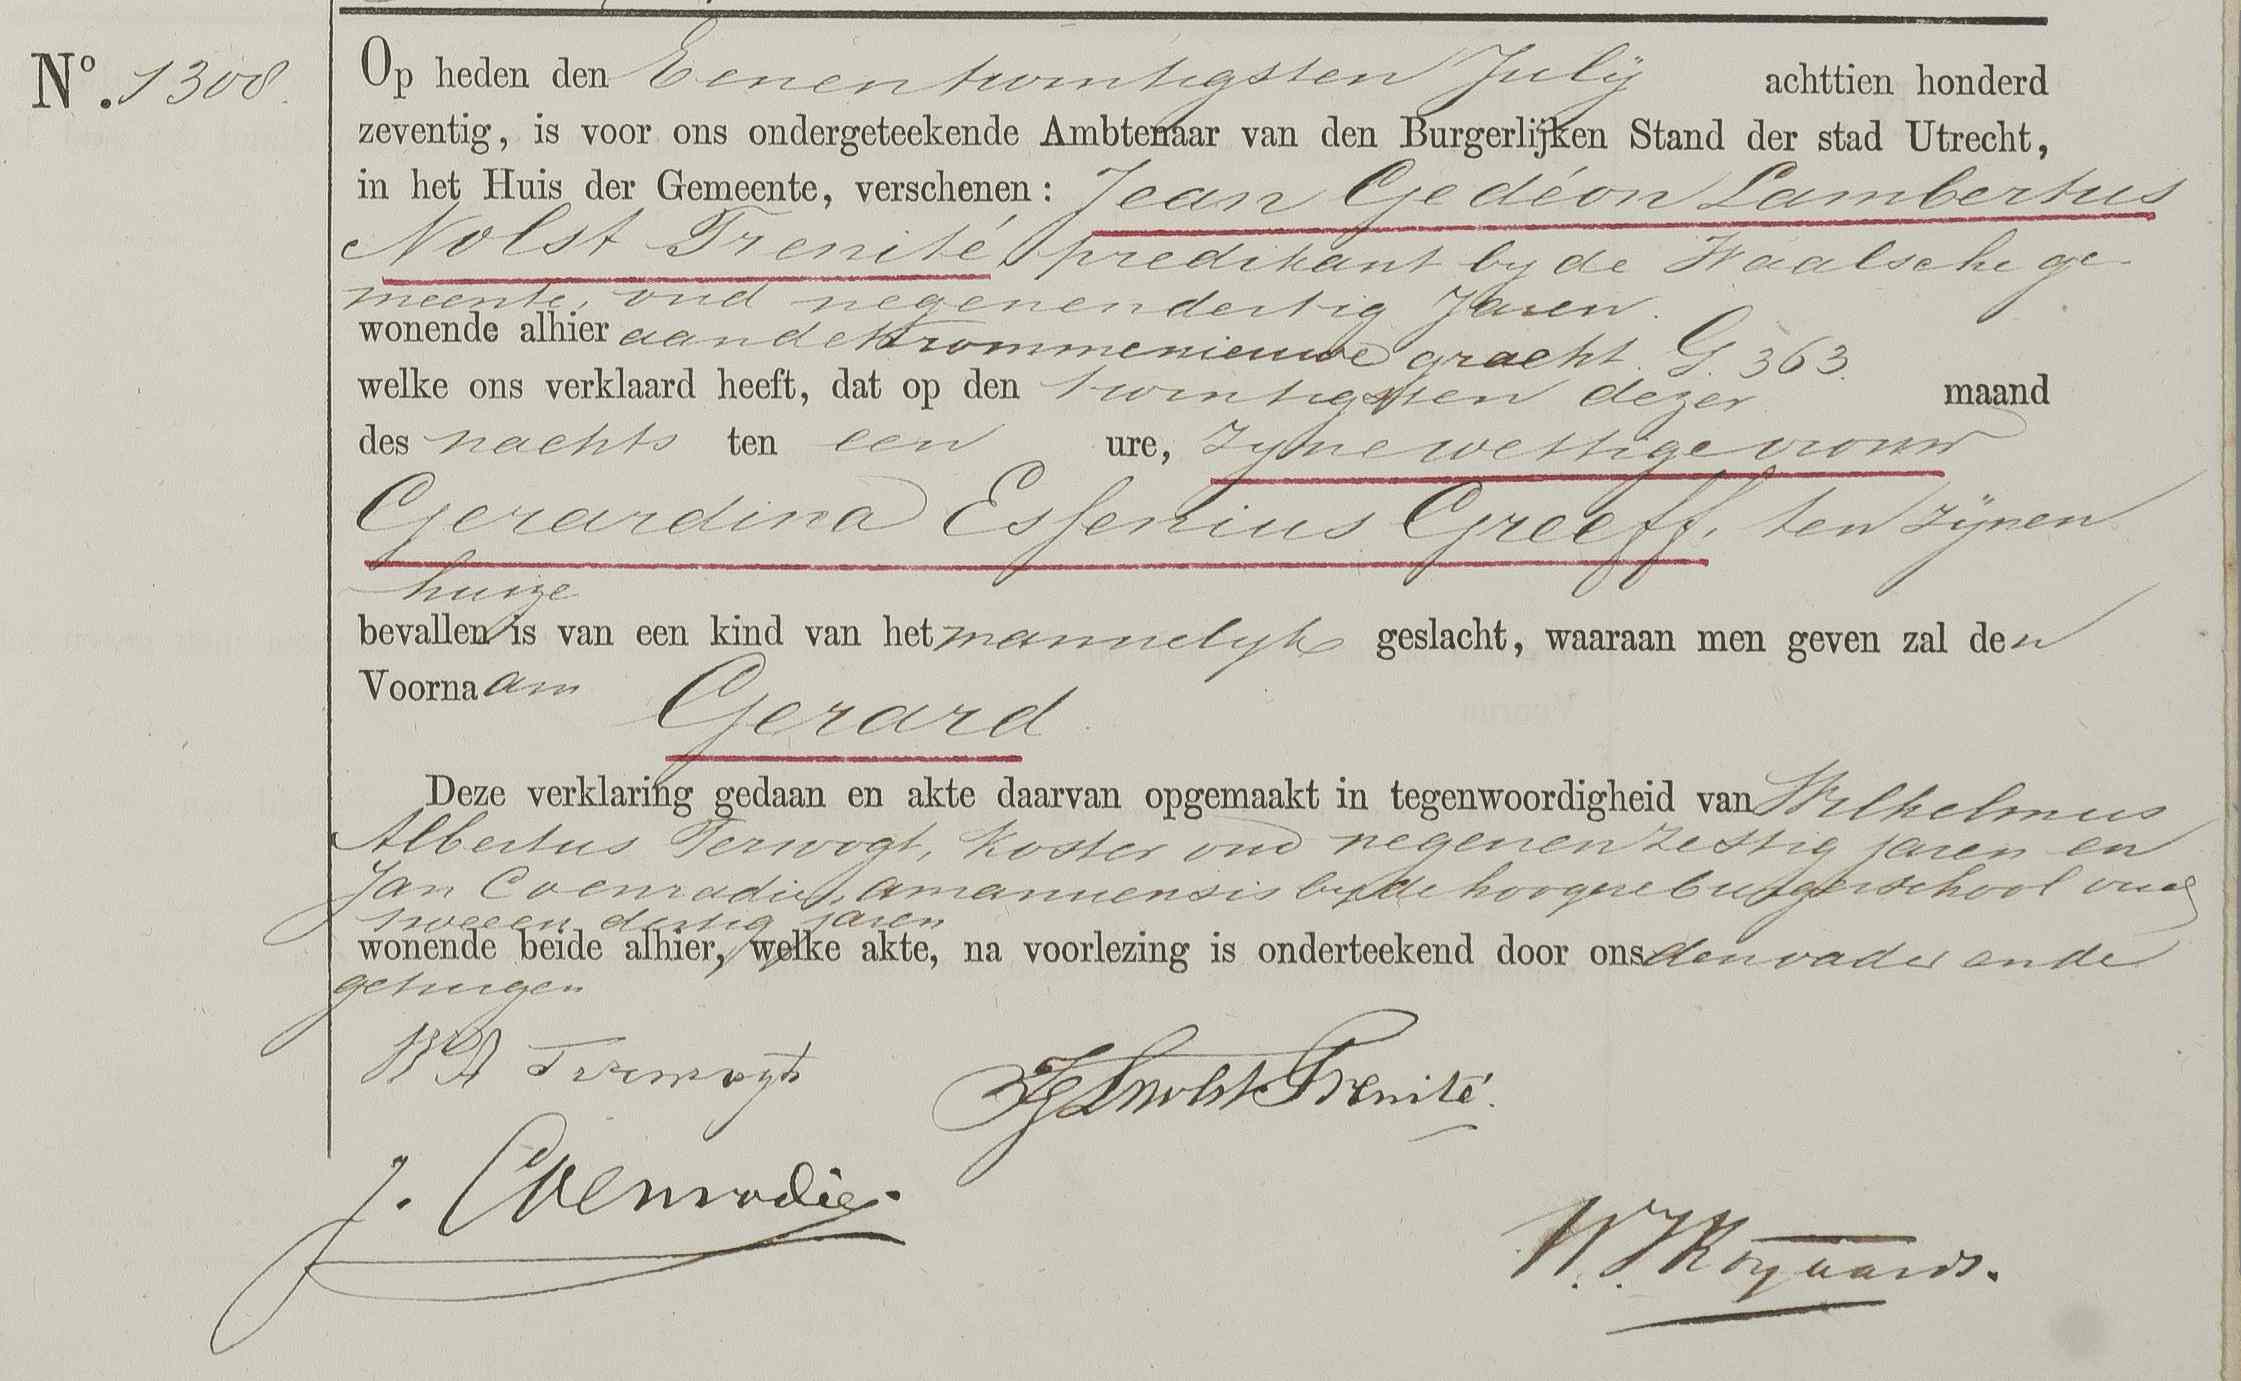 Nº. 1308.
Op heden den Eenentwintigsten Julij achttien honderd
zeventig, is voor ons ondergeteekende Ambtenaar van den Burgerlijken Stand der stad Utrecht,
in het Huis der Gemeente, verschenen: Jean Gedéon Lambertus
Nolst Trenité, predikant by de Waalsche ge-
meente, oud negenendertig Jaren.
wonende alhier aan de Krommenieuwe gracht. G. 363.
welke ons verklaard heeft, dat op den twintigsten dezer maand
des nachts ten een ure, zyne wettige vrouw
Gerardina Essenius Greeff, ten zijnen
huize
bevallen is van een kind van het mannelyk geslacht, waaraan men geven zal den
Voornaam Gerard.
Deze verklaring gedaan en akte daarvan opgemaakt in tegenwoordigheid van Wilhelmus
Albertus Terwogt, Koster oud negenenzestig jaren en
Jan Coenradie, amanuensis by de hoogere burgerschool oud
tweeen dertig jaren
wonende beide alhier, welke akte, na voorlezing is onderteekend door ons den vader en de
getuigen
WA Terwogt
JGL Nolst Trenité.
J. Coenradie.
W. J. Royaards.